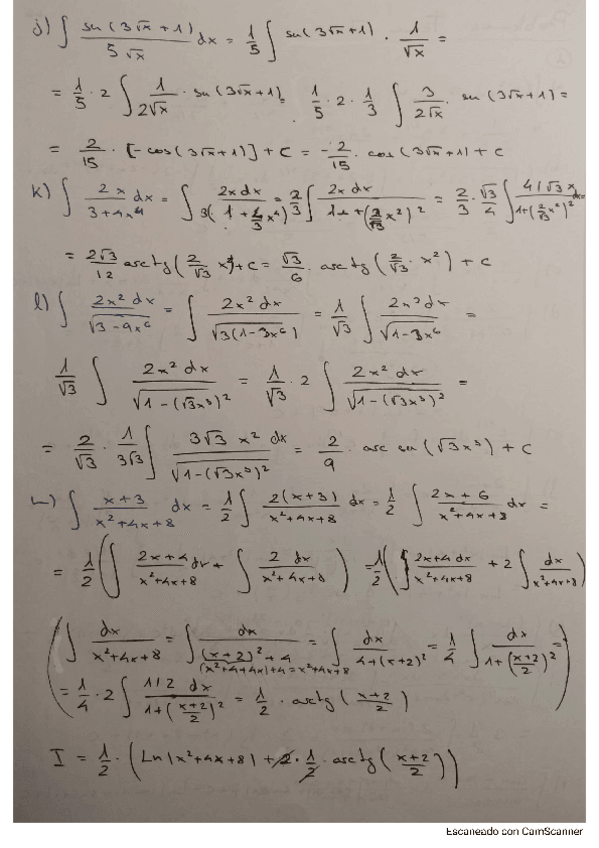 j) ∫ sen(3√x+1) / 5√x dx = 1/5 ∫ sen(3√x+1) · 1/√x =
= 1/5 · 2 ∫ 1/2√x · sen(3√x+1) = 1/5 · 2 · 1/3 ∫ 3/2√x · sen(3√x+1) =
= 2/15 · [-cos(3√x+1)] + C = -2/15 · cos(3√x+1) + C
k) ∫ 2x / 3+4x⁴ dx = ∫ 2x dx / 3(1+4/3 x⁴) = 2/3 ∫ 2x dx / 1+(2/√3 x²)² = 2/3 · √3/4 ∫ 4/√3 x / 1+(2/√3 x²)² dx
= 2√3/12 arctg(2/√3 x²)+C = √3/6 · arctg(2/√3 · x²) + C
l) ∫ 2x² dx / √3-9x⁶ = ∫ 2x² dx / √3(1-3x⁶) = 1/√3 ∫ 2x² dx / √1-3x⁶ =
1/√3 ∫ 2x² dx / √1-(√3x³)² = 1/√3 · 2 ∫ 2x² dx / √1-(√3x³)² =
= 2/√3 · 1/3√3 ∫ 3√3 x² dx / √1-(√3x³)² = 2/9 · arc sen(√3x³) + C
∫ x+3 / x²+4x+8 dx = 1/2 ∫ 2(x+3) / x²+4x+8 dx = 1/2 ∫ 2x+6 / x²+4x+8 dx =
= 1/2 (∫ 2x+4 / x²+4x+8 dx + ∫ 2 dx / x²+4x+8) = 1/2 (∫ 2x+4 dx / x²+4x+8 + 2 ∫ dx / x²+4x+8)
(∫ dx / x²+4x+8 = ∫ dx / (x+2)²+4 = ∫ dx / 4+(x+2)² = 1/4 ∫ dx / 1+(x+2/2)² =
(x²+4x+4)+4=x²+4x+8
= 1/4 · 2 ∫ 1/2 dx / 1+(x+2/2)² = 1/2 · arctg(x+2/2))
I = 1/2 · (Ln|x²+4x+8| + 2 · 1/2 · arctg(x+2/2))
Escaneado con CamScanner